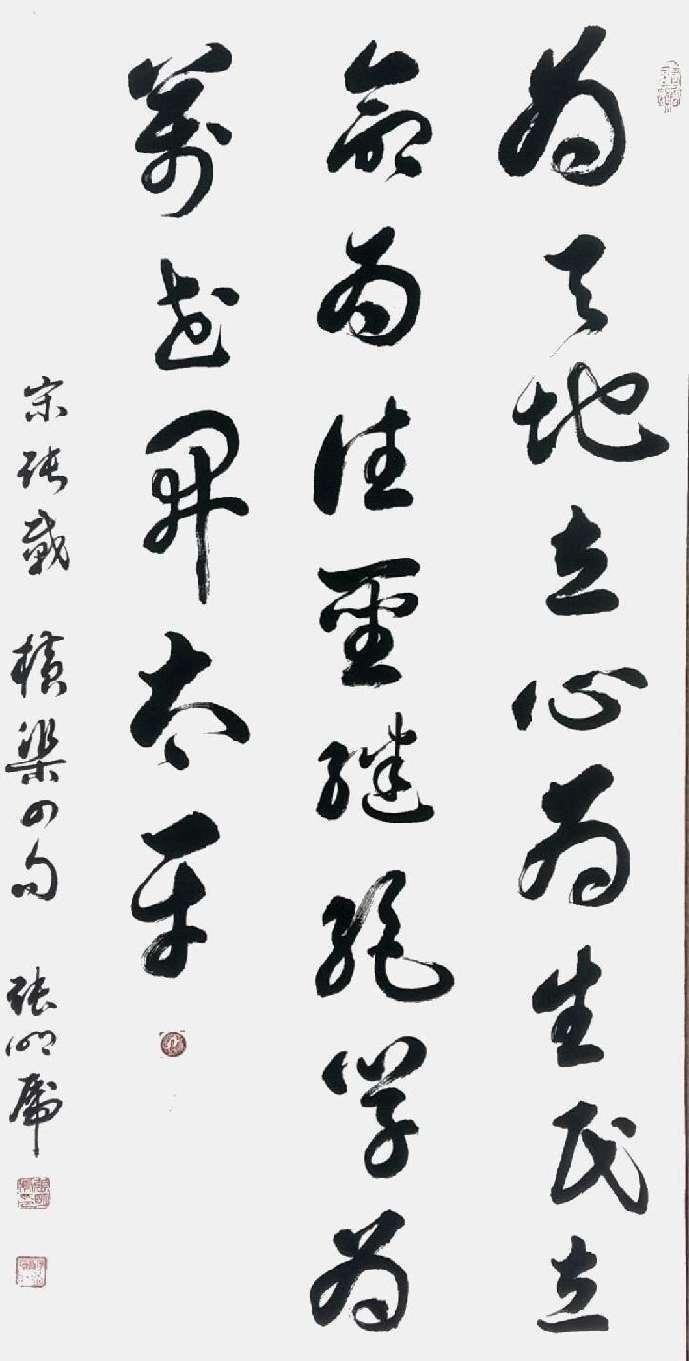 為天地立心為生民立
命為往聖繼絕學為
萬世開太平
宋張載 橫渠四句 張明虎